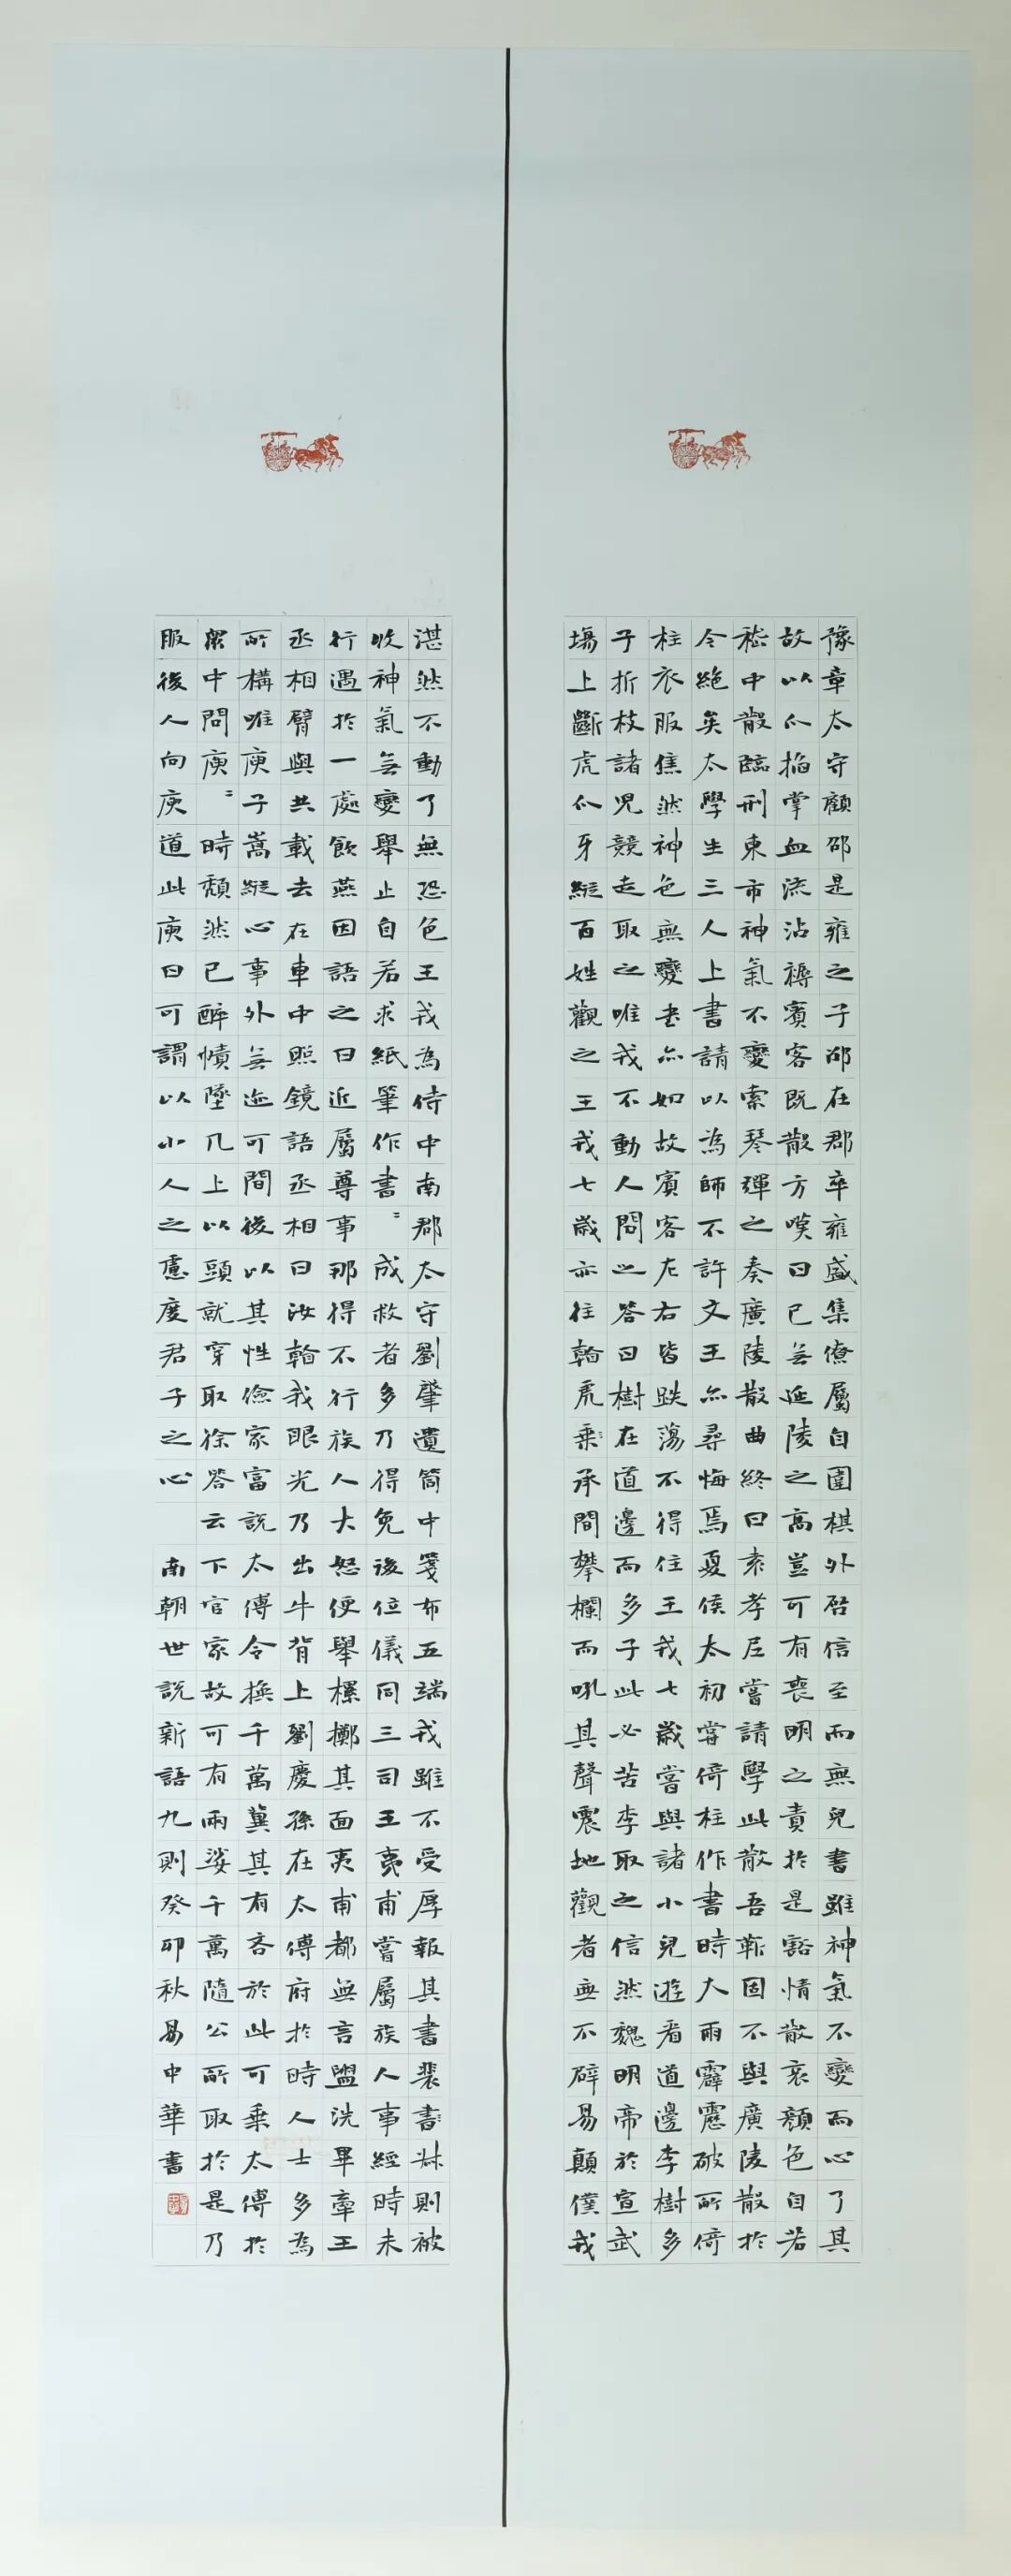 豫章太守顧邵是雍之子邵在郡卒雍盛集僚屬自圍棋外啓信至而無兒書雖神氣不變而心了其
故以爪掐掌血流沾褥賓客既散方嘆曰已無延陵之高豈可有喪明之責於是豁情散哀顏色自若
嵇中散臨刑東市神氣不變索琴彈之奏廣陵散曲終曰袁孝尼嘗請學此散吾靳固不與廣陵散於
今絕矣太學生三人上書請以為師不許文王亦尋悔焉夏侯太初嘗倚柱作書時大雨霹靂破所倚
柱衣服焦然神色無變書亦如故賓客左右皆跌蕩不得住王戎七歲嘗與諸小兒遊看道邊李樹多
子折枝諸兒競走取之唯戎不動人問之答曰樹在道邊而多子此必苦李取之信然魏明帝於宣武
場上斷虎爪牙縱百姓觀之王戎七歲亦往看虎乘承間攀欄而吼其聲震地觀者無不辟易顛僕戎
湛然不動了無恐色王戎為侍中南郡太守劉肇遺筒中箋布五端戎雖不受厚報其書裴書林則被
收神氣無變舉止自若求紙筆作書〻成救者多乃得免後位儀同三司王夷甫嘗屬族人事經時未
行遇於一處飲燕因語之曰近屬尊事那得不行族人大怒便舉樏擲其面夷甫都無言盥洗畢牽王
丞相臂與共載去在車中照鏡語丞相曰汝看我眼光乃出牛背上劉慶孫在太傅府於時人士多為
所構唯庾子嵩縱心事外無迹可間後以其性儉家富說太傅令換千萬冀其有吝於此可乘太傅於
衆中問庾〻時頹然已醉幘墜几上以頭就穿取徐答云下官家故可有兩娑千萬隨公所取於是乃
服後人向庾道此庾曰可謂以小人之慮度君子之心 南朝世說新語九則癸卯秋易中華書